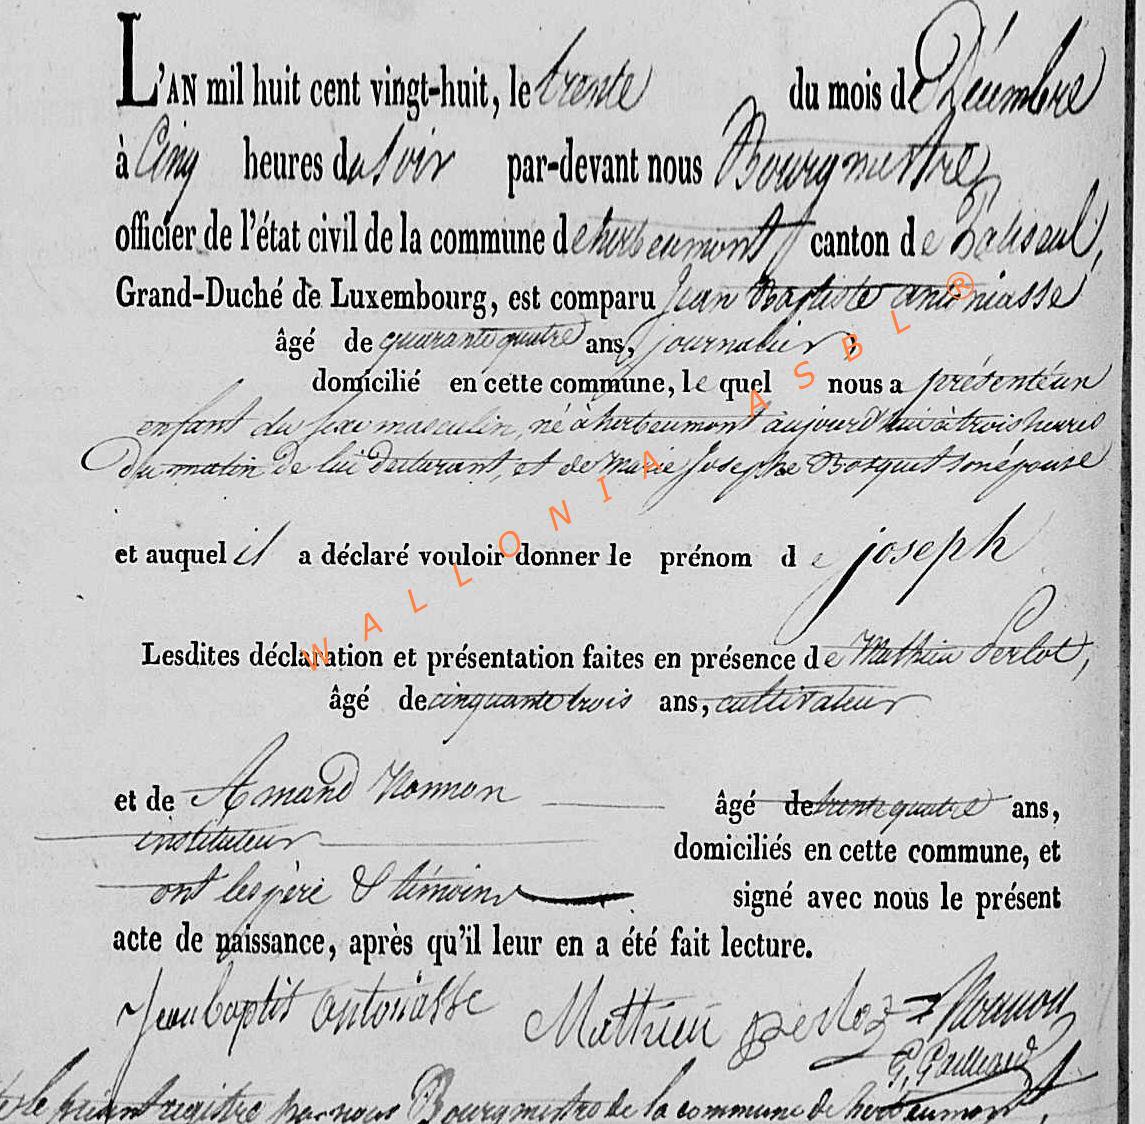 L'AN mil huit cent vingt-huit, le trente du mois de Décembre
à Cinq heures du Soir par-devant nous Bourgmestre
officier de l'état civil de la commune de herbeumont canton de Paliseul,
Grand-Duché de Luxembourg, est comparu Jean Baptiste antoniasse
âgé de quarante quatre ans, journalier,
domicilié en cette commune, le quel nous a présenté un
enfant du sexe masculin, né à herbeumont aujourd'hui à trois heures
du matin de lui declarant, et de Marie Josephe Bosquet son épouse
et auquel il a déclaré vouloir donner le prénom de joseph
Lesdites déclaration et présentation faites en présence de Mathieu Perlot,
âgé de cinquante trois ans, cultivateur
et de Amand Nonnon âgé de trente quatre ans,
instituteur domiciliés en cette commune, et
ont les père & témoins signé avec nous le présent
acte de naissance, après qu'il leur en a été fait lecture.
Jean baptist antoniasse Mathieu perlot Nonnon
le présent registre par nous Bourgmestre de la commune de herbeumont,
WALLONIA ASBL ®